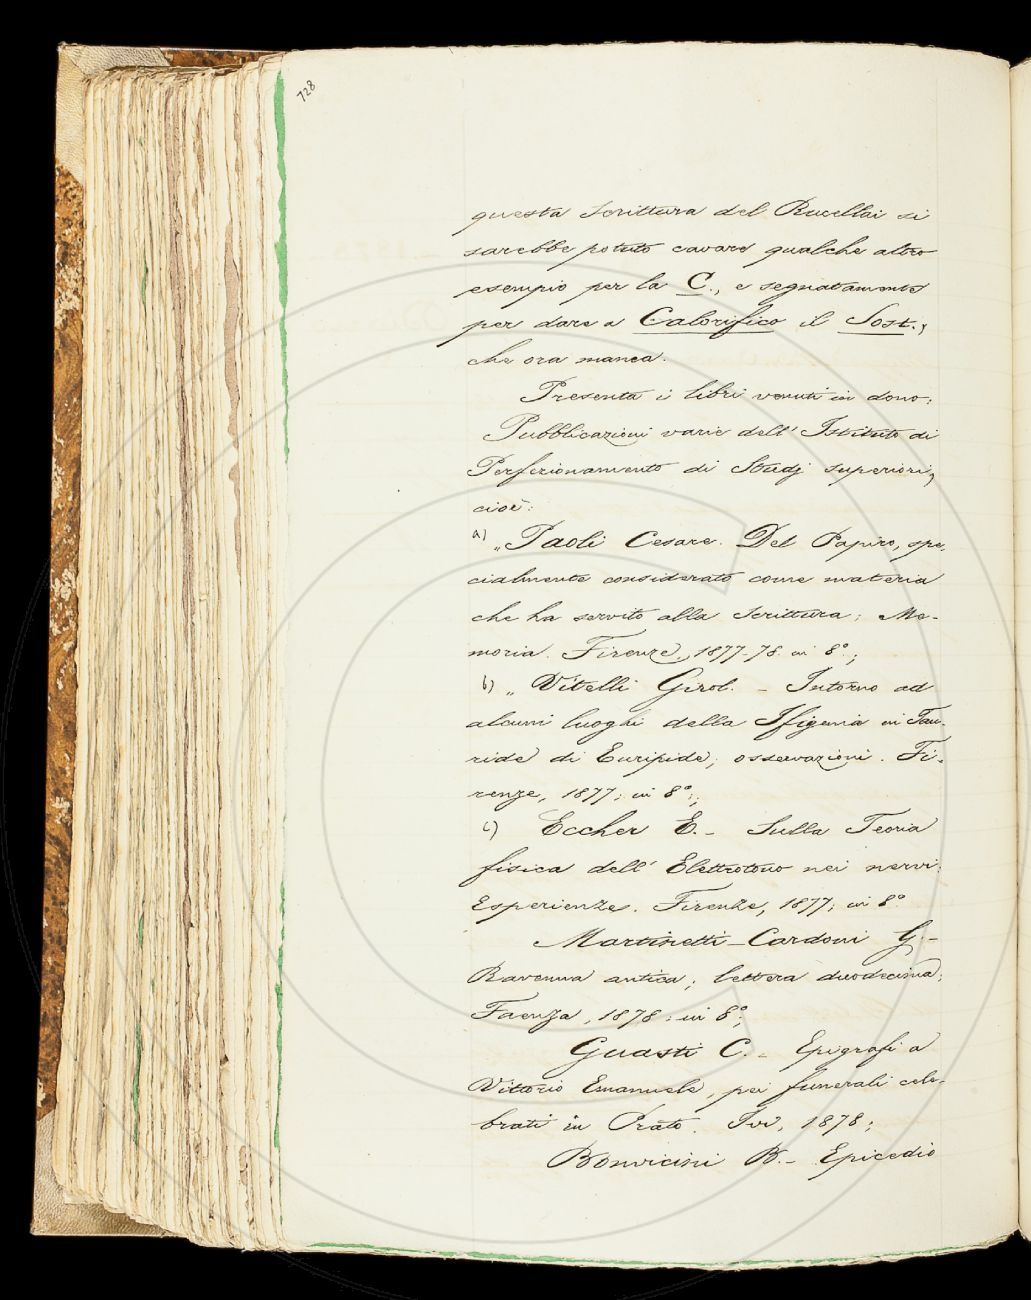 728
questa scrittura del Rucellai si
sarebbe potuto cavare qualche altro
esempio per la C., e segnatamente
per dare a Calorifico il Sost.,
che ora manca.
Presenta i libri venuti in dono:
Pubblicazioni varie dell' Istituto di
Perfezionamento di Studj superiori,
cioè:
a) „ Paoli Cesare. Del Papiro, spe-
cialmente considerato come materia
che ha servito alla scrittura; Me-
moria. Firenze, 1877-78. in 8°.;
b) „ Vitelli Girol. - Intorno ad
alcuni luoghi della Ifigenia in Tau-
ride di Euripide; osservazioni. Fi-
renze, 1877; in 8°.;
c) Eccher E. - Sulla Teoria
fisica dell' Elettrotono nei nervi.
Esperienze. Firenze, 1877; in 8°.
Martinetti-Cardoni G. -
Ravenna antica; lettera duodecima;
Faenza, 1878: in 8°;
Guasti C. - Epigrafi a
Vittorio Emanuele, pei funerali cele-
brati in Prato. Ivi, 1878;
Bonvicini B. - Epicedio